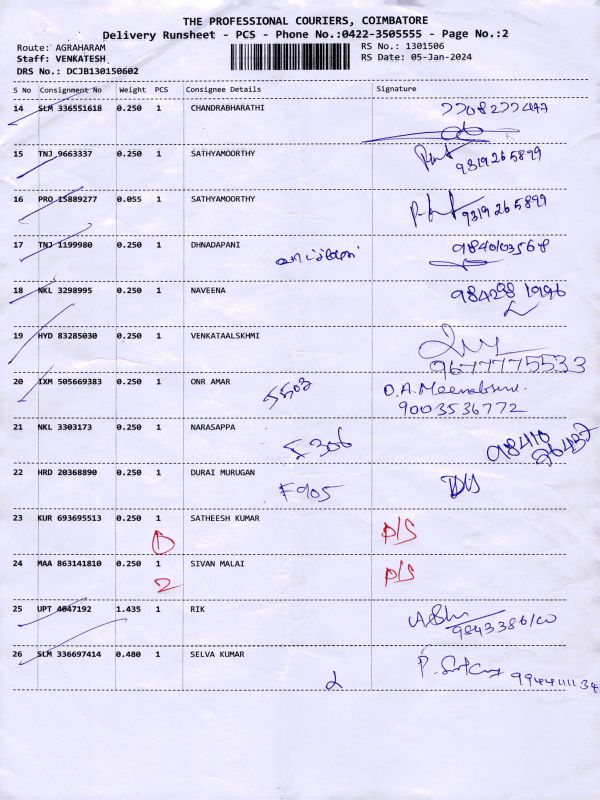 THE PROFESSIONAL COURIERS, COIMBATORE
Delivery Runsheet - PCS - Phone No.:0422-3505555 - Page No.:2
Route: AGRAHARAM RS No.: 1301506
Staff: VENKATESH RS Date: 05-Jan-2024
DRS No.: DCJB130150602
S No Consignment No Weight PCS Consignee Details Signature
14 SLM 336551618 0.250 1 CHANDRABHARATHI
15 TNJ 9663337 0.250 1 SATHYAMOORTHY
9319265899
16 PRO 15889277 0.055 1 SATHYAMOORTHY
9319265899
17 TNJ 1199980 0.250 1 DHNADAPANI
18 NKL 3298995 0.250 1 NAVEENA
19 HYD 83285030 0.250 1 VENKATAALSKHMI
9677775533
20 IXM 505669383 0.250 1 ONR AMAR
9003536772
21 NKL 3303173 0.250 1 NARASAPPA
F 306 98410
26437
22 HRD 20368890 0.250 1 DURAI MURUGAN
F905
23 KUR 693695513 0.250 1 SATHEESH KUMAR D/S
1
24 MAA 863141810 0.250 1 SIVAN MALAI D/S
2
25 UPT 4047192 1.435 1 RIK
26 SLM 336697414 0.480 1 SELVA KUMAR